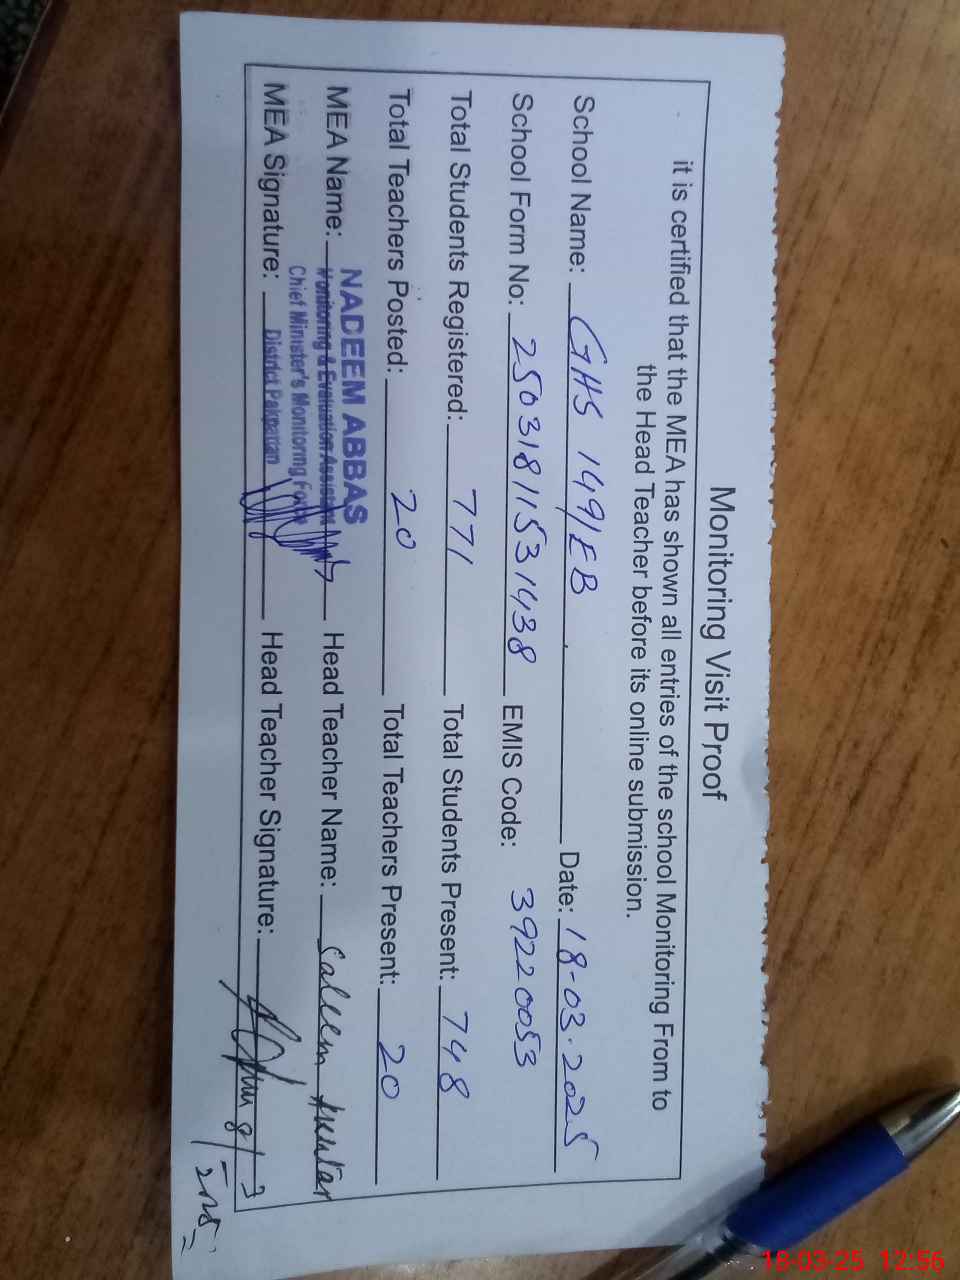 Monitoring Visit Proof
it is certified that the MEA has shown all entries of the school Monitoring From to
the Head Teacher before its online submission.
School Name: GHS 149/EB Date: 18-03-2025
School Form No: 25031811531438 EMIS Code: 39220053
Total Students Registered: 771 Total Students Present: 748
Total Teachers Posted: 20 Total Teachers Present: 20
NADEEM ABBAS
MEA Name: Monitoring & Evaluation Assistant Head Teacher Name: Saleem
Chief Minister's Monitoring Force
MEA Signature: District Pakpattan Head Teacher Signature:
18-03-25 12:56